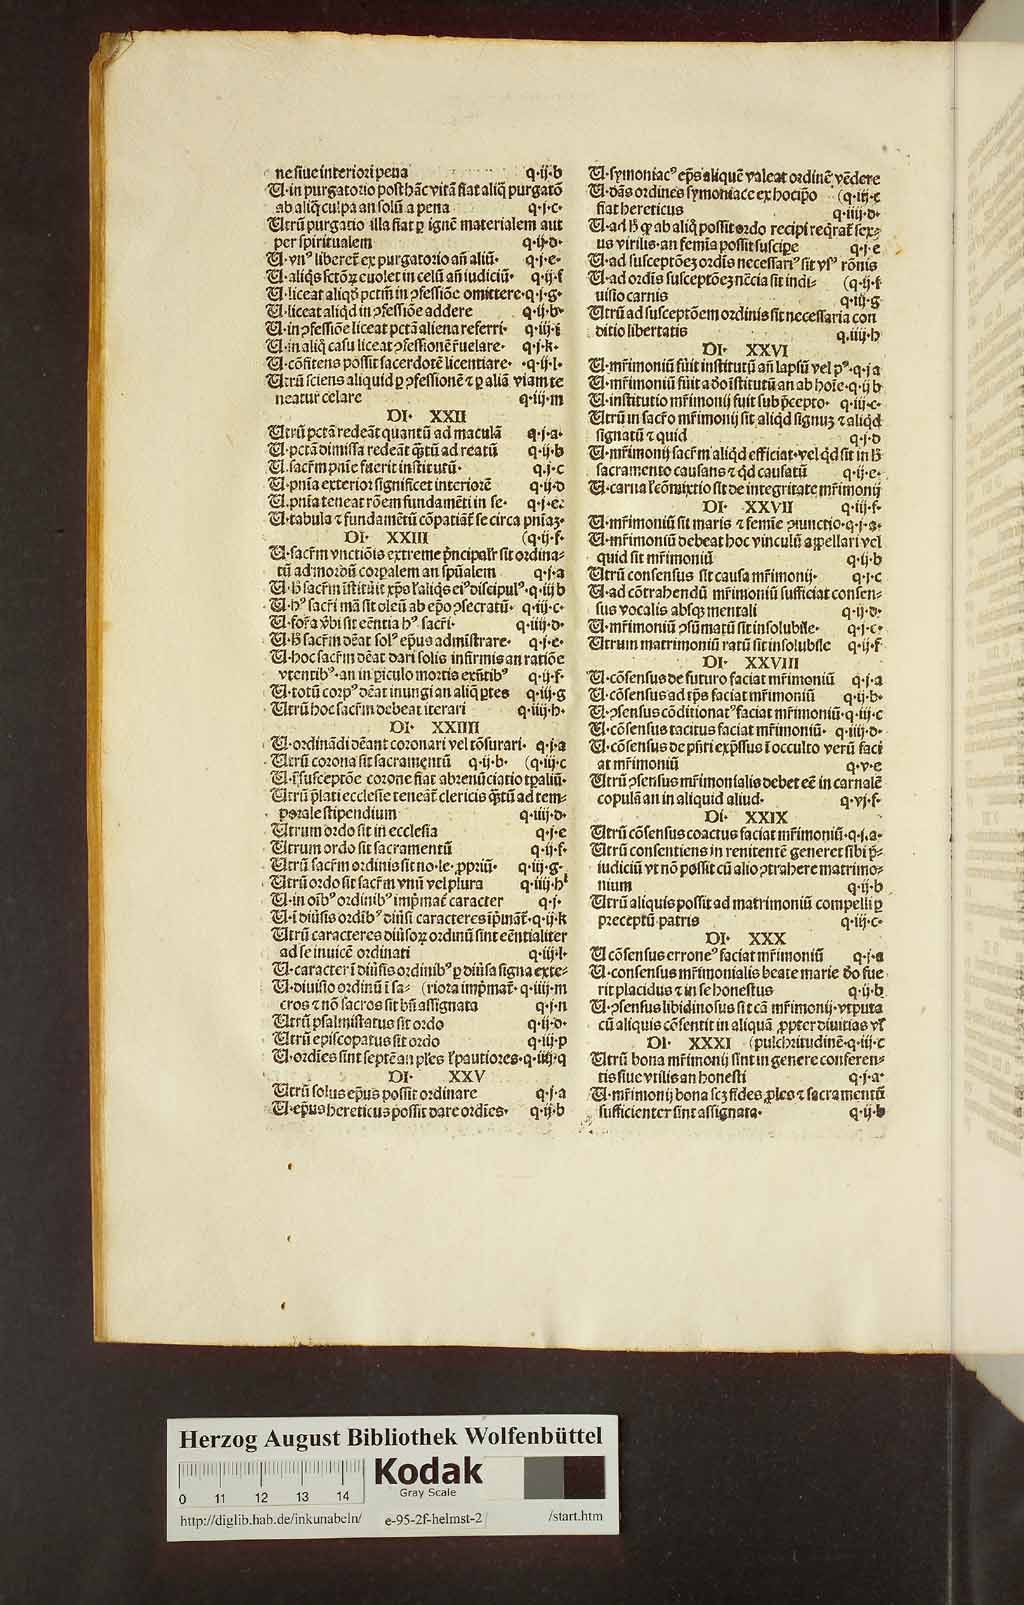 ne siue interiori pena q·ij·b
U·in purgatorio post hāc vitā fiat aliq̄ purgatō
ab aliq̄ culpa an solū a pena q·j·c·
Utrū purgatio illa fiat ꝑ ignē materialem aut
per spiritualem q·ij·d·
U·vnꝰ liberet᷑ ex purgatorio añ aliū· q·j·e·
U·aliqͥs sctōꝝ euolet in celū añ iudiciū· q·ij·f
U·liceat aliqͦ pctm̄ in ꝯfessiōe omittere·q·j·g·
U·liceat aliqd in ꝯfessiōe addere q·ij·h·
U·in ꝯfessiōe liceat pctā aliena referri· q·iij·i
U·in aliq̄ casu liceat ꝯfessionē r̄uelare· q·j·k·
U·cōfitens possit sacerdotē licentiare· q·ij·l·
Utrū sciens aliquid ꝑ ꝯfessionē ⁊ ꝑ aliā viam te
neatur celare q·iij·m
DI· XXII
Utrū pctā redeāt quantū ad maculā q·j·a·
U·pctā dimissa redeāt q̄tū ad reatū q·ij·b
U·sacr̄m pn̄ie fuerit institutū· q·j·c
U·pnīa exterior significet interiorē q·ij·d
U·pnīa teneat rōem fundamēti in se· q·j·e·
U·tabula ⁊ fundamētū cōpatiāt᷑ se circa pnīaꝫ·
DI· XXIII (q·ij·f·
U·sacr̄m vnctiōis extreme pͥncipalr̄ sit ordina⸗
tū ad morbū corꝑalem an spūalem q·j·a
U·ħ sacr̄m īstituit xp̄s l̄ aliqͥs eiꝰ discipulꝰ·q·iij b
U·hꝰ sacr̄i mā sit oleū ab ep̄o ꝯsecratū· q·iij·c·
U·for̄a v̄bi sit eēntia hꝰ sacr̄i· q·iiij·d·
U·ħ sacr̄m dēat solꝰ ep̄us admīstrare· q·j·e·
U·hoc sacr̄m dēat dari solis infirmis an ratiōe
vtentibꝰ·an in ꝑiculo mortis exn̄tibꝰ q·ij·f·
U·totū corpꝰ dēat inungi an aliq̄ ꝑtes q·iij·g
Utrū hoc sacr̄m debeat iterari q·iiij·h·
DI· XXIIII
U·ordināndi dēant coronari vel tōsurari· q·j·a
Utrū corona sit sacramentū q·ij·b· (q·iij·c
U·ī susceptōe corone fiat abrenūciatio tꝑaliū·
Utrū p̄lati ecclesie teneāt᷑ clericis q̄tū ad tem⸗
porale stipendium q·iiij·d·
Utrum ordo sit in ecclesia q·j·e
Utrum ordo sit sacramentū q·ij·f·
Utrū sacr̄m ordinis sit no·le·ꝓpriū· q·iij·g·
Utrū ordo sit sacr̄m vnū vel plura q·iiij·h
U·in oībꝰ ordinibꝰ imp̄mat᷑ caracter q·j·
U·ī diūsis ordībꝰ diūsi caracteres īp̄māt᷑·q·ij·k
Utrū caracteres diūsoꝝ ordinū sint eēntialiter
ad se inuicē ordinati q·iij·l·
U·caracter ī diūsis ordinibꝰ ꝑ diūsa signa exte⸗
U·diuisio ordinū ī sa⸗ (riora imp̄mat᷑·q·iiij·m
cros ⁊ nō sacros sit bn̄ assignata q·j·n
Utrū psalmistatus sit ordo q·ij·o·
Utrū episcopatus sit ordo q·iij·p
U·ordīes sint septē an pl̄es l̄ pautiores·q·iiij·q
DI· XXV
Utrū solus ep̄us possit ordinare q·j·a
U·ep̄us hereticus possit dare ordīes· q·ij·b
U·symoniacꝰ ep̄s aliquē valeat ordinē vēdere
U·dās ordines symoniace ex hoc ip̄o (q·iij·c
fiat hereticus q·iiij·d·
U·ad ħ ꝙ ab aliq̄ possit ordo recipi reqͥrat᷑ sex⸗
us virilis·an femīa possit suscipe q·j·e
U·ad susceptōeꝫ ordīs necessariꝰ sit vsꝰ rōnis
U·ad ordīs susceptōeꝫ nēcia sit indi⸗ (q·ij·f
uisio carnis q·iij·g
Utrū ad susceptōem ordinis sit necessaria con
ditio libertatis q·iiij·h
DI· XXVI
U·mr̄imoniū fūit institutū añ lapsū vel pꝰ·q·j a
U·mr̄imoniū fūit a dō īstitutū an ab hoīe·q·ij b
U·institutio mr̄imonij fuit sub p̄cepto· q·iij·c·
Utrū in sacr̄o mr̄imonij sit aliqd signuꝫ ⁊ aliqd
signatū ⁊ quid q·j·d
U·mr̄imonij sacr̄m aliqd efficiat·vel qd sit in ħ
sacramento causans ⁊ qd causatū q·ij·e·
U·carnal̄ cōmixtio sit de integritate mr̄imonij
DI· XXVII q·iij·f·
U·mr̄imoniū sit maris ⁊ femīe ꝯiunctio·q·j·a·
U·mr̄imoniū debeat hoc vinculū appellari vel
quid sit mr̄imoniū q·ij·b
Utrū consensus sit causa mr̄imonij· q·j·c
U·ad cōtrahendū mr̄imoniū sufficiat consen⸗
sus vocalis absqꝫ mentali q·ij·d·
U·mr̄imoniū ꝯsūmatū sit insolubile· q·j·c·
Utrum matrimoniū ratū sit insolubile q·ij·f
DI· XXVIII
U·cōsensus de futuro faciat mr̄imoniū q·j·a
U·cōsensus ad tp̄s faciat mr̄imoniū q·ij·b·
U·ꝯsensus cōditionatꝰ faciat mr̄imoniū·q·iij·c
U·cōsensus tacitus faciat mr̄imoniū· q·iiij·d·
U·cōsensus de pn̄ti exp̄ssus ī occulto verū faci
at mr̄imoniū q·v·e
Utrū ꝯsensus mr̄imonialis debet eē in carnalē
copulā an in aliquid aliud· q·vj·f·
Di· XXIX
Utrū cōsensus coactus faciat mr̄imoniū·q·j·a·
Utrū consentiens in renitentē generet sibi p̄⸗
iudiciū vt nō possit cū alio ꝯtrahere matrimo⸗
nium q·ij·b
Utrū aliquis possit ad matrimoniū compelli ꝑ
preceptū patris q·iij·c·
DI· XXX
U·cōsensus erroneꝰ faciat mr̄imoniū q·j·a
U·consensus mr̄imonialis beate marie dō fue
rit placidus ⁊ in se honestus q·ij·b
U·ꝯsensus libidinosus sit cā mr̄imonij·vtputa
cū aliquis cōsentit in aliquā ꝓpter diuitias vl̄
DI· XXXI (pulchritudinē·q·iij·c
Utrū bona mr̄imonij sint in genere conferen⸗
tis siue vtilis an honesti q·j·a·
U·mr̄imonij bona scꝫ fides ꝓles ⁊ sacramentū
sufficienter sint assignata· q·ij·b
Herzog August Bibliothek Wolfenbüttel
Kodak
Gray Scale
0 11 12 13 14
http://diglib.hab.de/inkunabeln/ e-95-2f-helmst-2 /start.htm